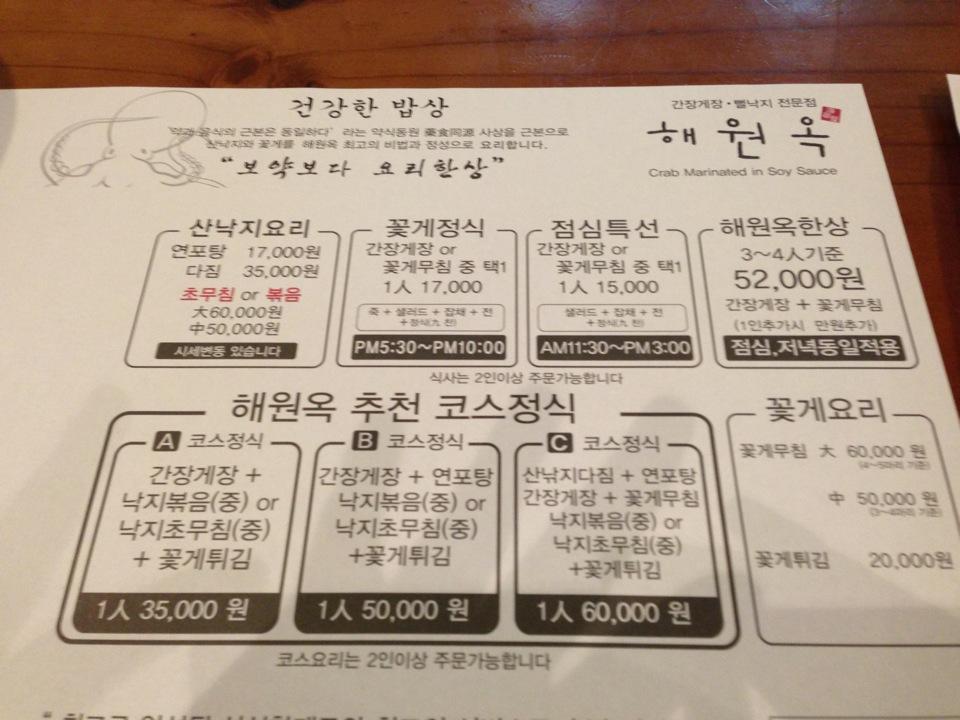 건강한 밥상
'약과 음식의 근본은 동일하다' 라는 약식동원 藥食同源 사상을 근본으로
산낙지와 꽃게를 해원옥 최고의 비법과 정성으로 요리합니다.
"보약보다 요리한상"
간장게장 · 뻘낙지 전문점
해원옥
Crab Marinated in Soy Sauce
산낙지요리
연포탕 17,000원
다짐 35,000원
초무침 or 볶음
大60,000원
中50,000원
시세변동 있습니다
꽃게정식
간장게장 or
꽃게무침 중 택1
1人 17,000
죽 + 샐러드 + 잡채 + 전
+ 정식(九 찬)
PM5:30~PM10:00
점심특선
간장게장 or
꽃게무침 중 택1
1人 15,000
샐러드 + 잡채 + 전
+ 정식(九 찬)
AM11:30~PM3:00
해원옥한상
3~4人기준
52,000원
간장게장 + 꽃게무침
(1인추가시 만원추가)
점심,저녁동일적용
식사는 2인이상 주문가능합니다
해원옥 추천 코스정식
A 코스정식
간장게장 +
낙지볶음(중) or
낙지초무침(중)
+ 꽃게튀김
1人 35,000 원
B 코스정식
간장게장 + 연포탕
낙지볶음(중) or
낙지초무침(중)
+꽃게튀김
1人 50,000 원
C 코스정식
산낚지다짐 + 연포탕
간장게장 + 꽃게무침
낙지볶음(중) or
낙지초무침(중)
+꽃게튀김
1人 60,000 원
꽃게요리
꽃게무침 大 60,000 원
(4~5마리 기준)
中 50,000 원
(3~4마리 기준)
꽃게튀김 20,000원
코스요리는 2인이상 주문가능합니다